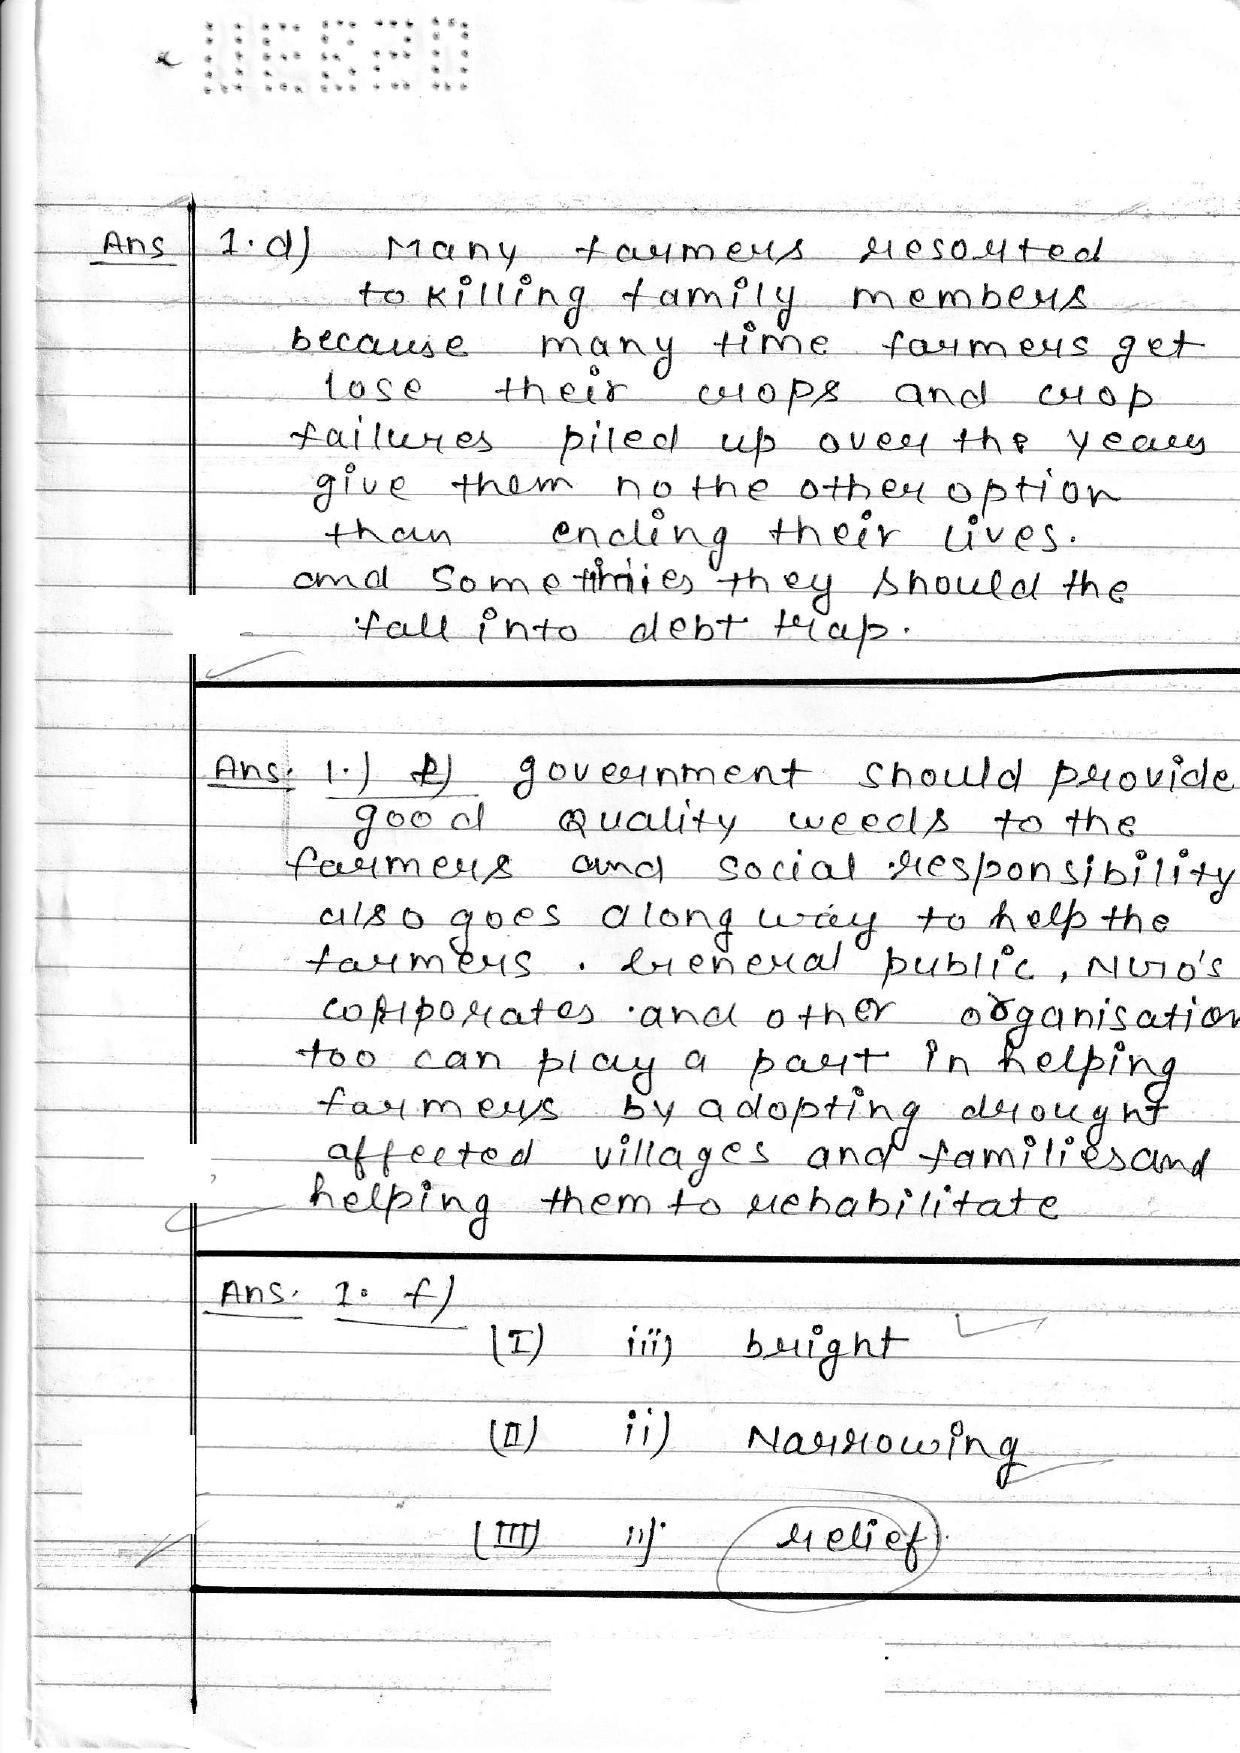 Ans 1.d) Many farmers resorted
to killing family members
because many time farmers get
lose their crops and crop
failures piled up over the years
give them no the other option
than ending their lives.
and sometimies they should the
fall into debt trap.
Ans: 1.) e) government should provide
good Quality weeds to the
farmers and social responsibility
also goes along way to help the
farmers. General public, NGO's
corporates and other organisation
too can play a part in helping
farmers by adopting drought
affected villages and families and
helping them to rehabilitate
Ans. 1. f)
(I) iii) bright
(II) ii) Narrowing
(III) ii). relief.